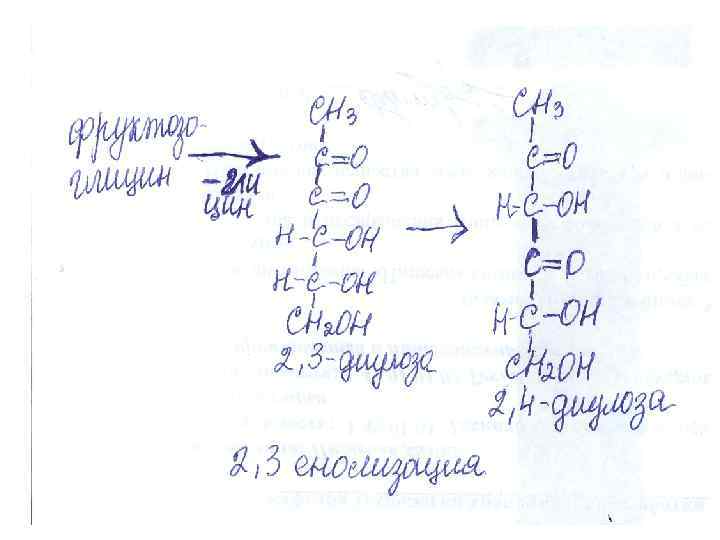 фруктозо-
глицин
-гли
цин
CH3
C=O
C=O
H-C-OH
H-C-OH
CH2OH
2,3-диулоза
CH3
C=O
H-C-OH
C=O
H-C-OH
CH2OH
2,4-диулоза
2,3 енолизация